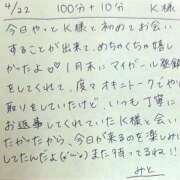 4/22 100分+10分 K様
今日やっとK様と初めてお会い
することが出来て、めちゃくちゃ嬉し
かったよ♡1月末にマイガール登録
をしてくれて、度々オキニトークでや
取りをしていたけど、いつも丁寧に
お返事してくれていたK様と会い
たかったから、今日が来るのを楽しみに
してたんだよ(ˊᵕˋ)また待ってるね!!
みと